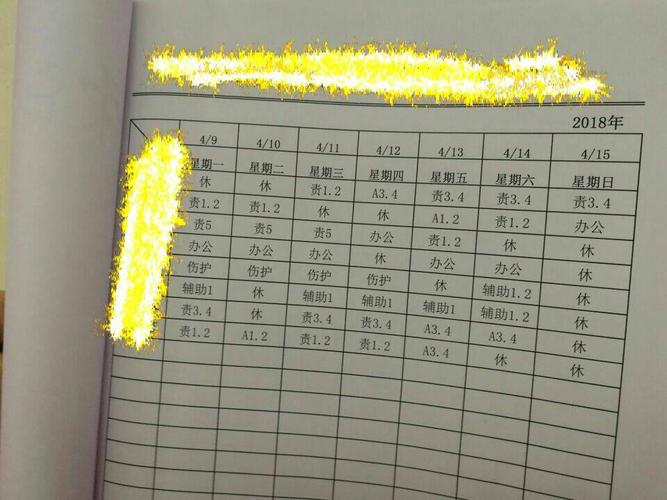 2018年
4/9 4/10 4/11 4/12 4/13 4/14 4/15
星期一 星期二 星期三 星期四 星期五 星期六 星期日
休 休 责1.2 A3.4 责3.4 责3.4 责3.4
责1.2 责1.2 休 休 A1.2 责1.2 办公
责5 责5 责5 办公 责1.2 休 休
办公 办公 办公 休 办公 办公 休
伤护 伤护 伤护 伤护 休 辅助1.2 休
辅助1 休 辅助1 辅助1 辅助1 辅助1 休
责3.4 休 责3.4 责3.4 A3.4 A3.4 休
责1.2 A1.2 责1.2 责1.2 A3.4 休 休